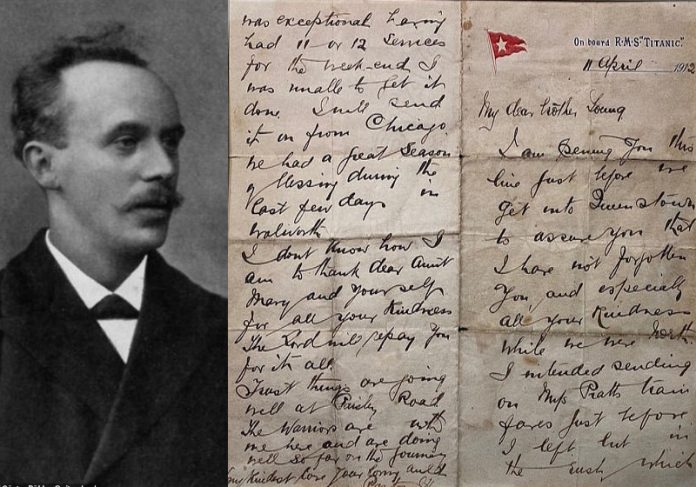 On board R·M·S "TITANIC."
11 April 1912
My dear brother Young
I am penning you this
line just before we
get into Queenstown
to assure you that
I have not forgotten
you, and especially
all your kindness
while we were North.
I intended sending
on Miss Pratts train
fares just before
I left but in
the rush which
was exceptional having
had 11 or 12 Services
for the week-end I
was unable to get it
done. I will send
it on from Chicago
We had a great season
of blessing during the
last few days in
Walworth
I dont know how I
am to thank dear Aunt
Mary and yourself
for all your kindness
The Lord will repay you
for it all.
Trust things are going
well at Paisley Road
The Warriors are with
me here and are doing
well so far on the journey
my kindest love your loving auld